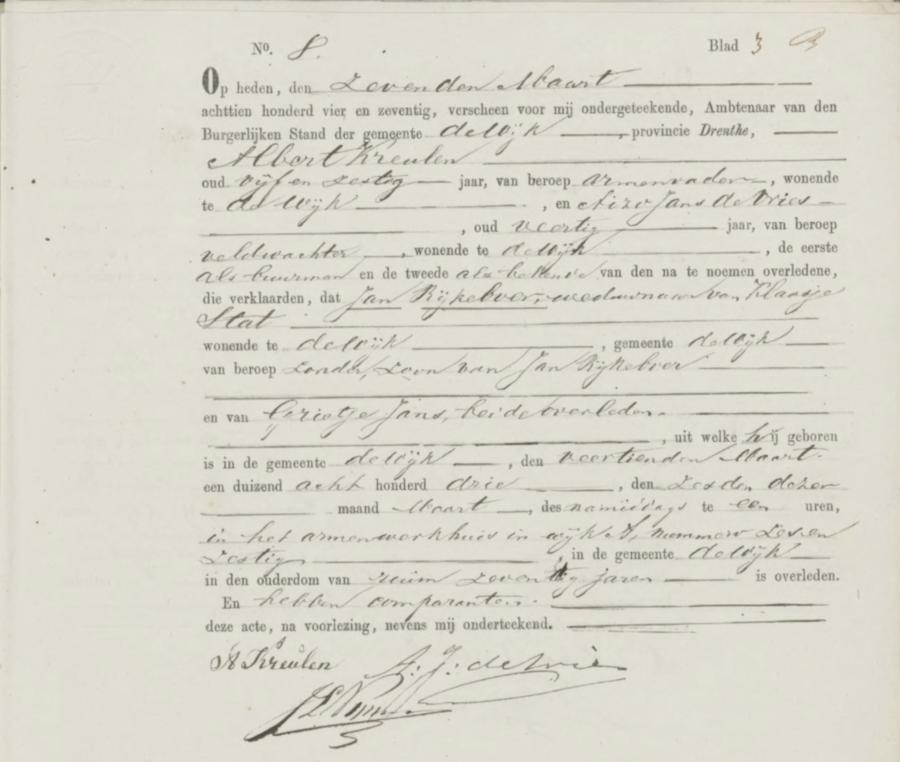 No. 8. Blad 3
Op heden, den zevenden Maart
achttien honderd vier en zeventig, verscheen voor mij ondergeteekende, Ambtenaar van den
Burgerlijken Stand der gemeente de Wijk, provincie Drenthe,
Albert Kreulen
oud vijf en zestig jaar, van beroep armenvader, wonende
te de Wijk, en Jans de Vries
, oud veertig jaar, van beroep
veldwachter, wonende te de Wijk, de eerste
als buurman en de tweede als bekende van den na te noemen overledene,
die verklaarden, dat Jan Rijkelver, weduwnaar van Klaasje
Stat
wonende te de Wijk, gemeente de Wijk
van beroep zonder, zoon van Jan Rijkelver
en van Grietje Jans, beide overleden.
, uit welke hij geboren
is in de gemeente de Wijk, den veertienden Maart
een duizend acht honderd drie, den zesden dezer
maand Maart, des namiddags te een uren,
in het armenwerkhuis in wijk A, nummero zes en
zestig, in de gemeente de Wijk
in den ouderdom van ruim zeventig jaren is overleden.
En hebben comparanten
deze acte, na voorlezing, nevens mij onderteekend.
A Kreulen A. J. de Vries